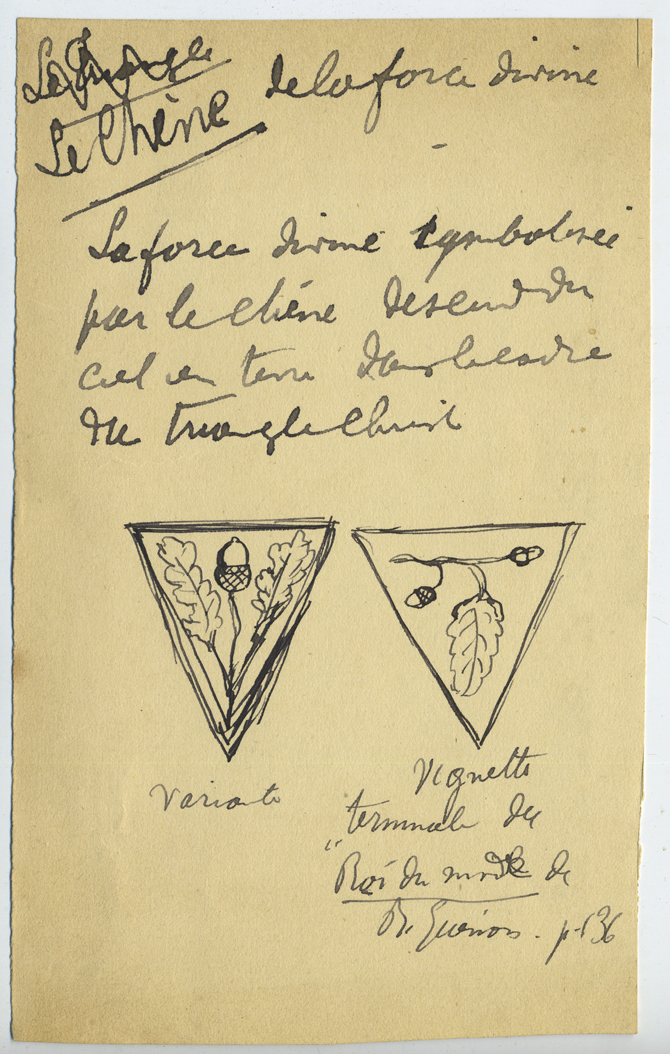 Le Triangle
Le Chêne de la force divine
La force divine symbolisée
par le chêne descend du
ciel en terre dans le cadre
du triangle Christ
Variante
Vignette
terminale du
"Roi du monde de
R. Guénon. p. 136